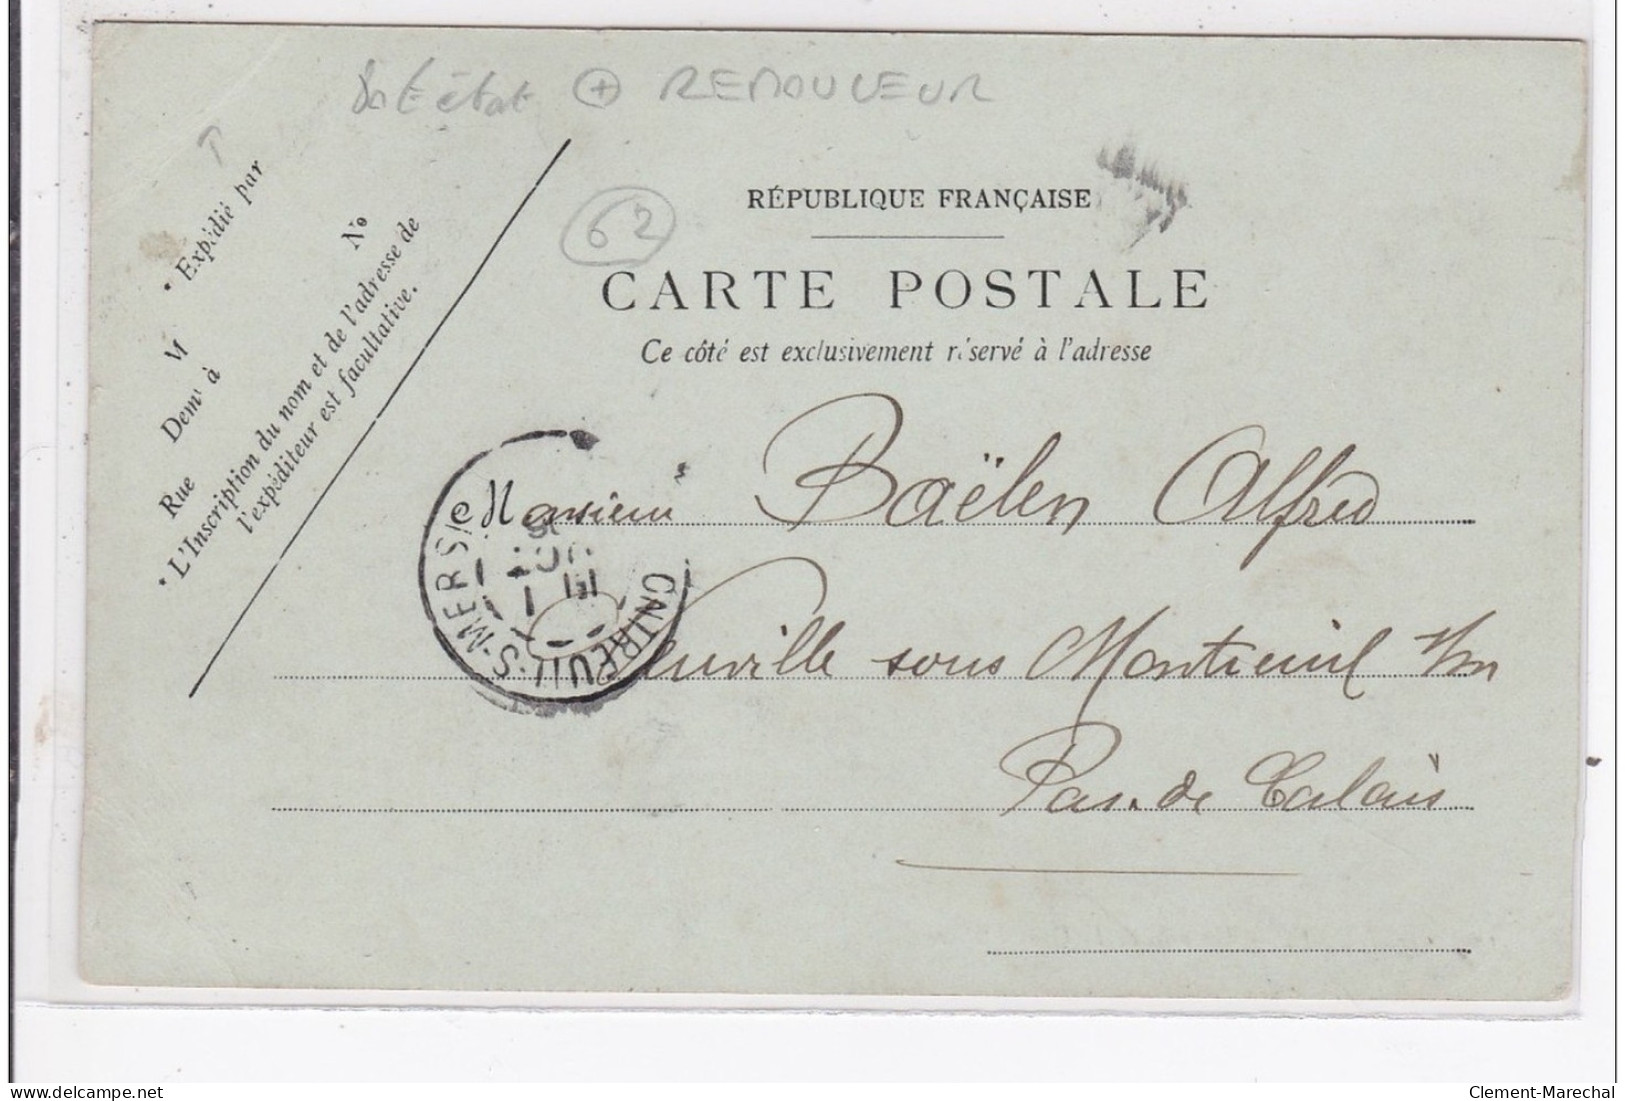 état + REMOULEUR
62
Expédié par
M
N°
Demt à
Rue
L'Inscription du nom et de l'adresse de
l'expéditeur est facultative.
RÉPUBLIQUE FRANÇAISE
CARTE POSTALE
Ce côté est exclusivement réservé à l'adresse
Monsieur Baëlen Alfred
Neuville sous Montreuil s/m
Pas-de Calais
ONTREUIL-S-MER
delcampe.net
Clement-Marechal